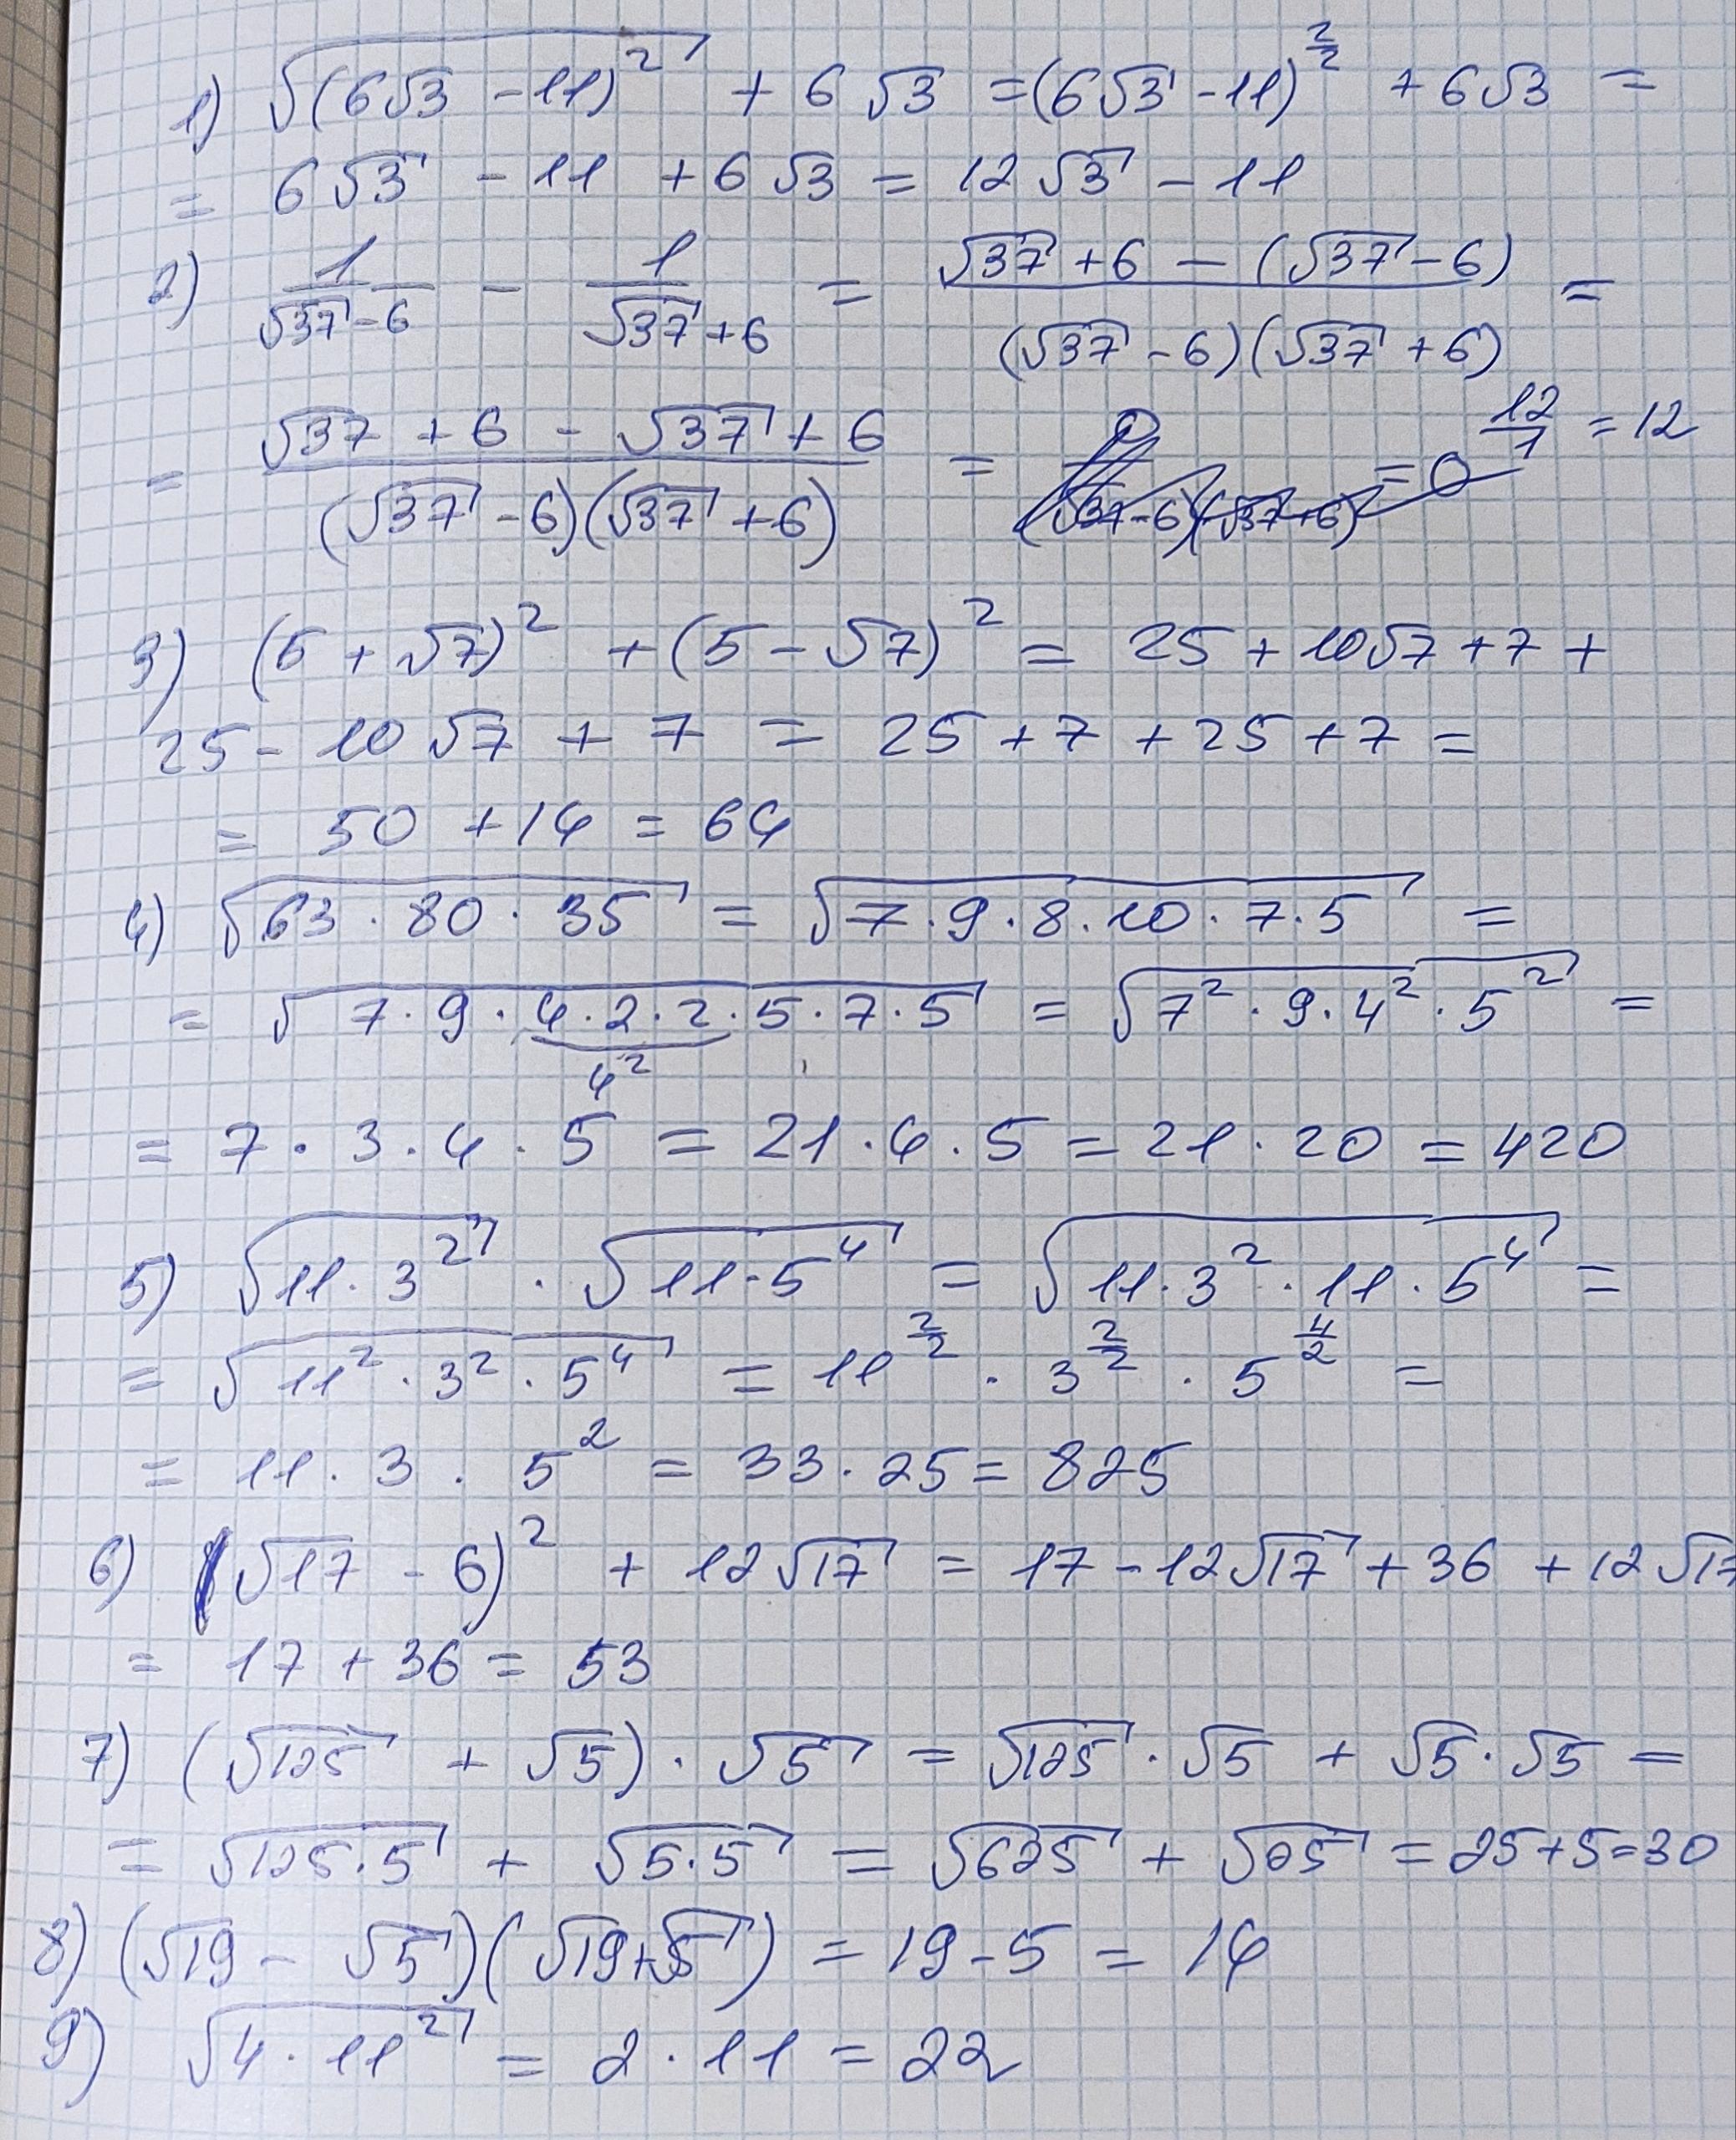 1) √((6√3 - 11)²) + 6√3 = (6√3 - 11)^(2/2) + 6√3 =
= 6√3 - 11 + 6√3 = 12√3 - 11
2) 1/(√37 - 6) - 1/(√37 + 6) = (√37 + 6 - (√37 - 6))/((√37 - 6)(√37 + 6)) =
= (√37 + 6 - √37 + 6)/((√37 - 6)(√37 + 6)) = 0/((√37 - 6)(√37 + 6)) = 0 12/1 = 12
3) (5 + √7)² + (5 - √7)² = 25 + 10√7 + 7 +
25 - 10√7 + 7 = 25 + 7 + 25 + 7 =
= 50 + 14 = 64
4) √(63 · 80 · 35) = √(7 · 9 · 8 · 10 · 7 · 5) =
= √(7 · 9 · 4 · 2 · 2 · 5 · 7 · 5) = √(7² · 9 · 4² · 5²) =
4²
= 7 · 3 · 4 · 5 = 21 · 4 · 5 = 21 · 20 = 420
5) √(11 · 3²) · √(11 · 5⁴) = √(11 · 3² · 11 · 5⁴) =
= √(11² · 3² · 5⁴) = 11^(2/2) · 3^(2/2) · 5^(4/2) =
= 11 · 3 · 5² = 33 · 25 = 825
6) (√17 - 6)² + 12√17 = 17 - 12√17 + 36 + 12√17
= 17 + 36 = 53
7) (√125 + √5) · √5 = √125 · √5 + √5 · √5 =
= √(125 · 5) + √(5 · 5) = √625 + √25 = 25 + 5 = 30
8) (√19 - √5)(√19 + √5) = 19 - 5 = 14
9) √(4 · 11²) = 2 · 11 = 22